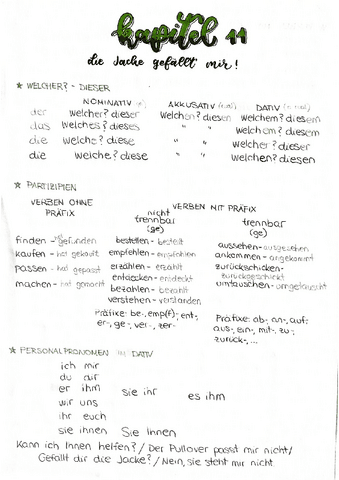 kapitel 11
die Jacke gefällt mir!
★ WELCHER? - DIESER
NOMINATIV AKKUSATIV DATIV
der welcher? dieser welchen? diesen welchem? diesem
das welches? dieses " " welchem? diesem
die welche? diese " " welcher? dieser
die welche? diese " " welchen? diesen
★ PARTIZIPIEN
VERBEN OHNE PRÄFIX
VERBEN MIT PRÄFIX
nicht trennbar (ge)
trennbar (ge)
finden - hat gefunden
kaufen - hat gekauft
passen - hat gepasst
machen - hat gemacht
bestellen - bestellt
empfehlen - empfohlen
erzählen - erzählt
entdecken - entdeckt
bezahlen - bezahlt
verstehen - verstanden
Präfixe: be-, emp(f)-, ent-,
er-, ge-, ver-, zer-
aussehen - ausgesehen
ankommen - angekommt
zurückschicken -
zurückgeschickt
umtauschen - umgetauscht
Präfixe: ab-, an-, auf-,
aus-, ein-, mit-, zu-,
zurück-, ...
★ PERSONALPRONOMEN im DATIV
ich mir
du dir
er ihm sie ihr es ihm
wir uns
ihr euch
sie ihnen Sie Ihnen
Kann ich Ihnen helfen? / Der Pullover passt mir nicht /
Gefällt dir die Jacke? / Nein, sie steht mir nicht